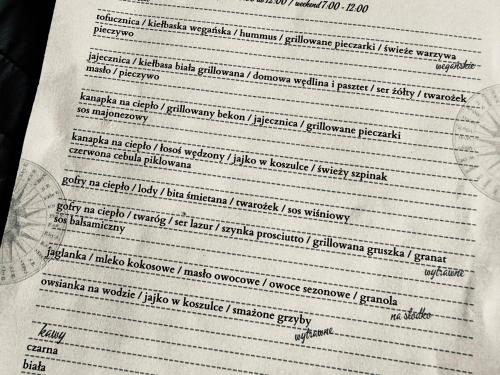 12:00 / weekend 7.00 - 12.00
tofucznica / kiełbaska wegańska / hummus / grillowane pieczarki / świeże warzywa
pieczywo
wegańskie
jajecznica / kiełbasa biała grillowana / domowa wędlina i pasztet / ser żółty / twarożek
masło / pieczywo
kanapka na ciepło / grillowany bekon / jajecznica / grillowane pieczarki
sos majonezowy
kanapka na ciepło / łosoś wędzony / jajko w koszulce / świeży szpinak
czerwona cebula piklowana
gofry na ciepło / lody / bita śmietana / twarożek / sos wiśniowy
gofry na ciepło / twaróg / ser lazur / szynka prosciutto / grillowana gruszka / granat
sos balsamiczny
wytrawne
jaglanka / mleko kokosowe / masło owocowe / owoce sezonowe / granola
na słodko
owsianka na wodzie / jajko w koszulce / smażone grzyby
wytrawne
kawy
czarna
biała